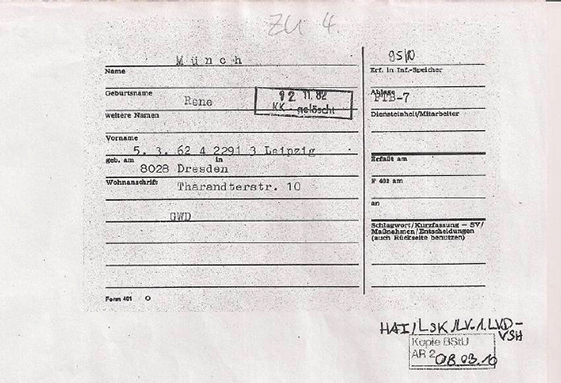 ZU 4.
Münch
Name
Geburtsname
Rene
12. 11. 82
KK gelöscht
weitere Namen
Vorname
5. 3. 62 4 2291 3 Leipzig
geb. am in
8028 Dresden
Wohnanschrift Tharandterstr. 10
GWD
Form 401 O
95/0
Erf. in Inf.-Speicher
Ablage
PTB-7
Diensteinheit/Mitarbeiter
Erfaßt am
F 402 am
an
Schlagwort/Kurzfassung – SV/
Maßnahmen/Entscheidungen
(auch Rückseite benutzen)
HAI/LSK/LV-1.LVD-
VSH
Kopie BStU
AR 2 08.03.10